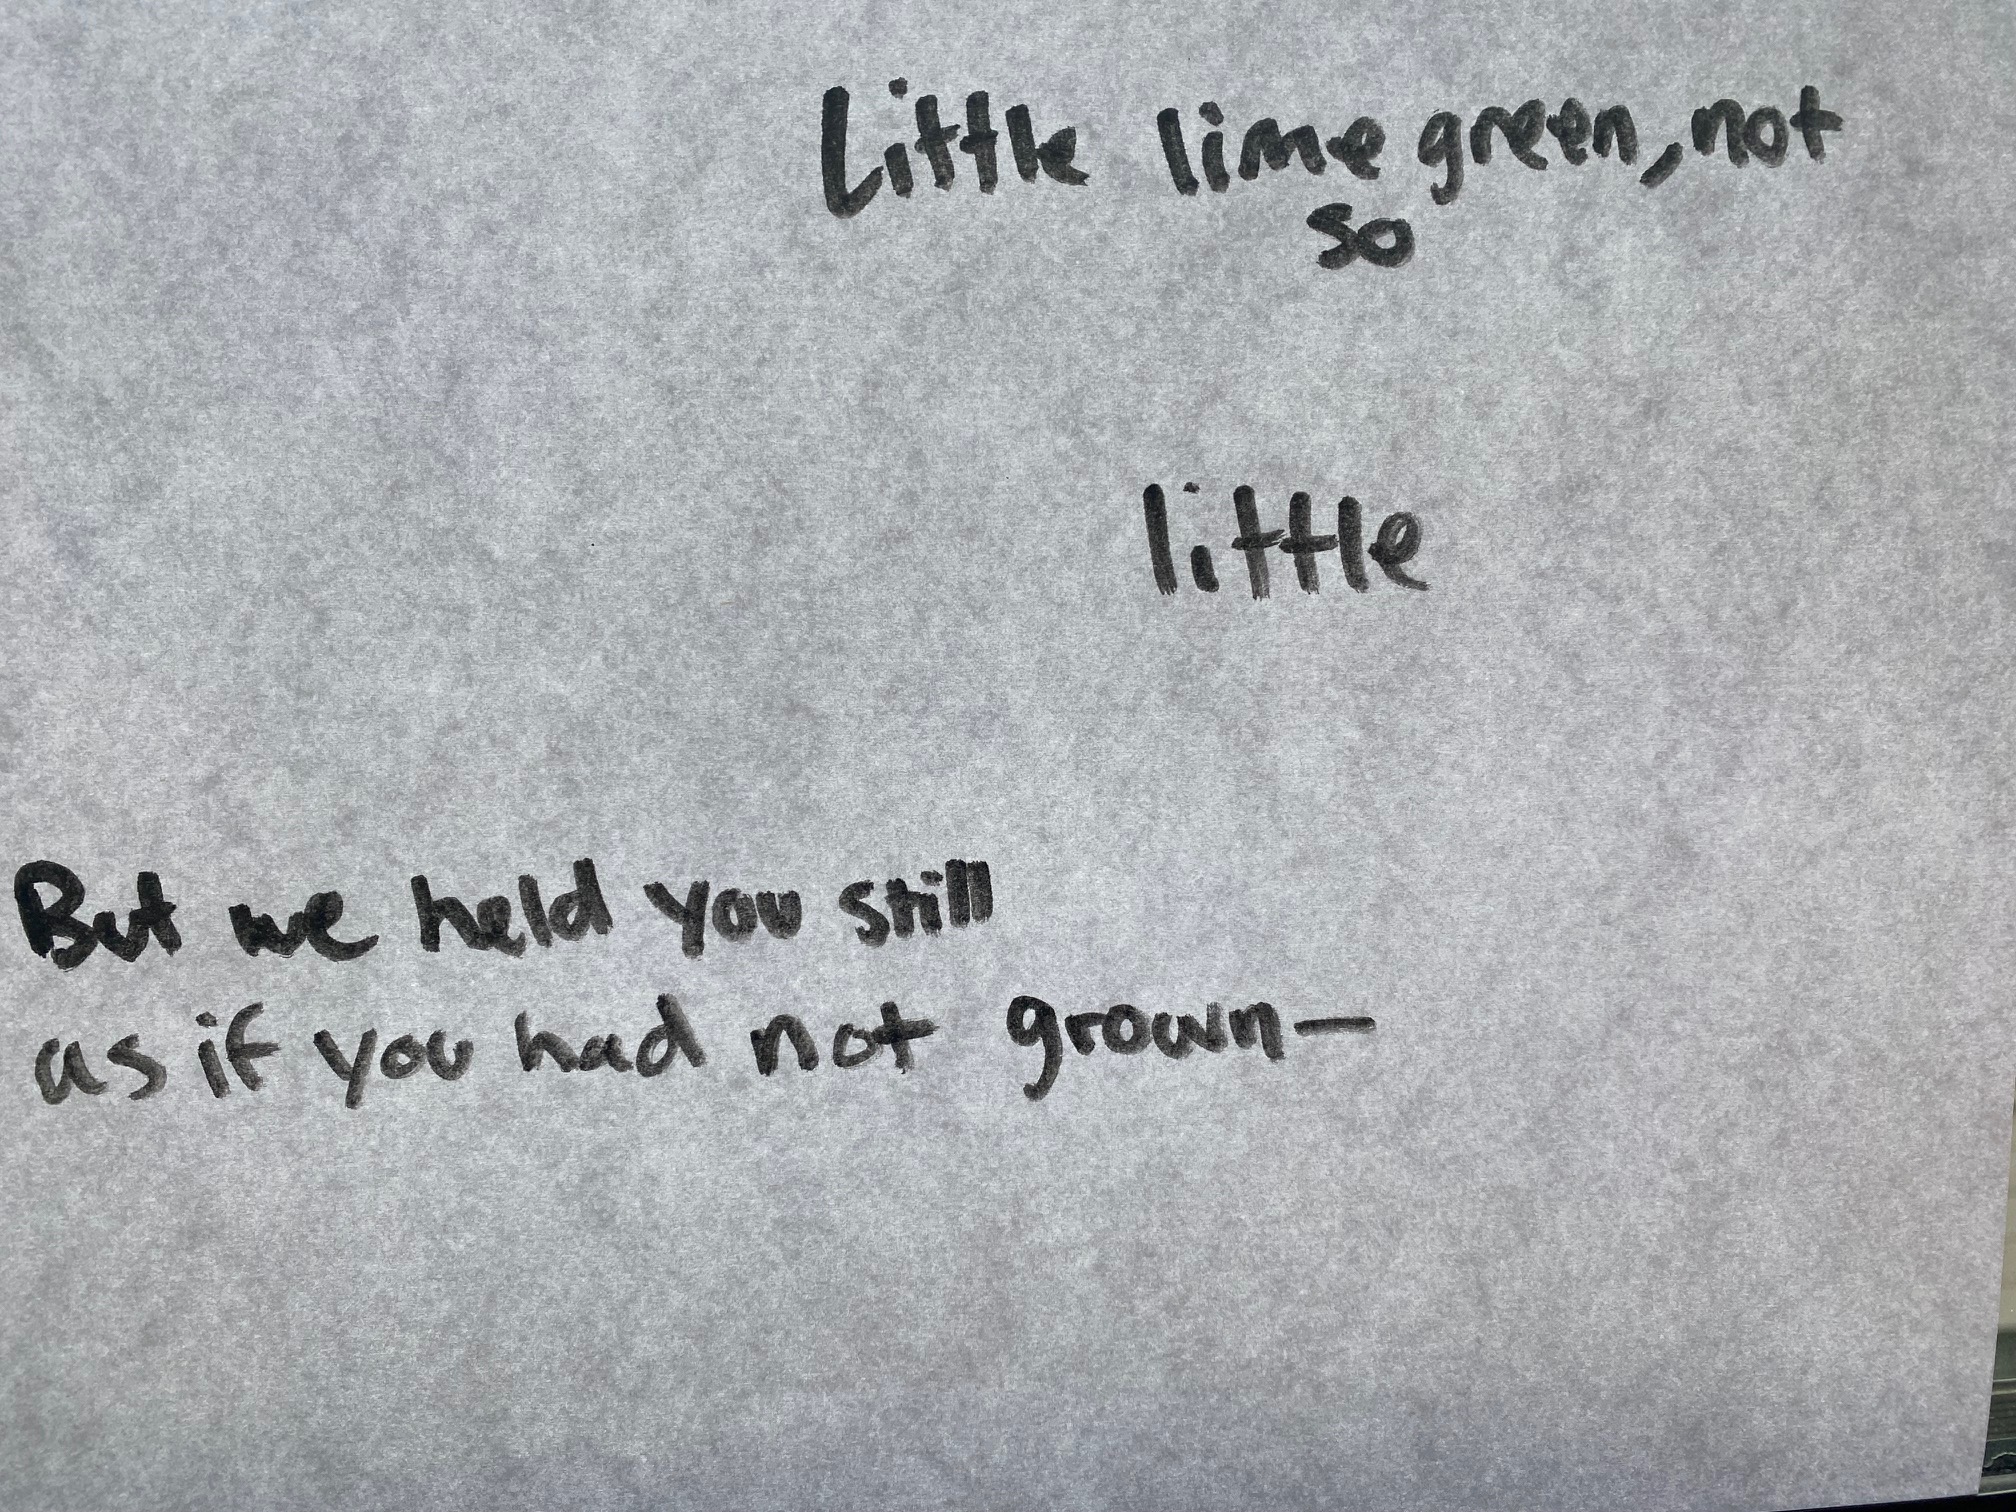 Little lime green, not
so
little
But we held you still
as if you had not grown—